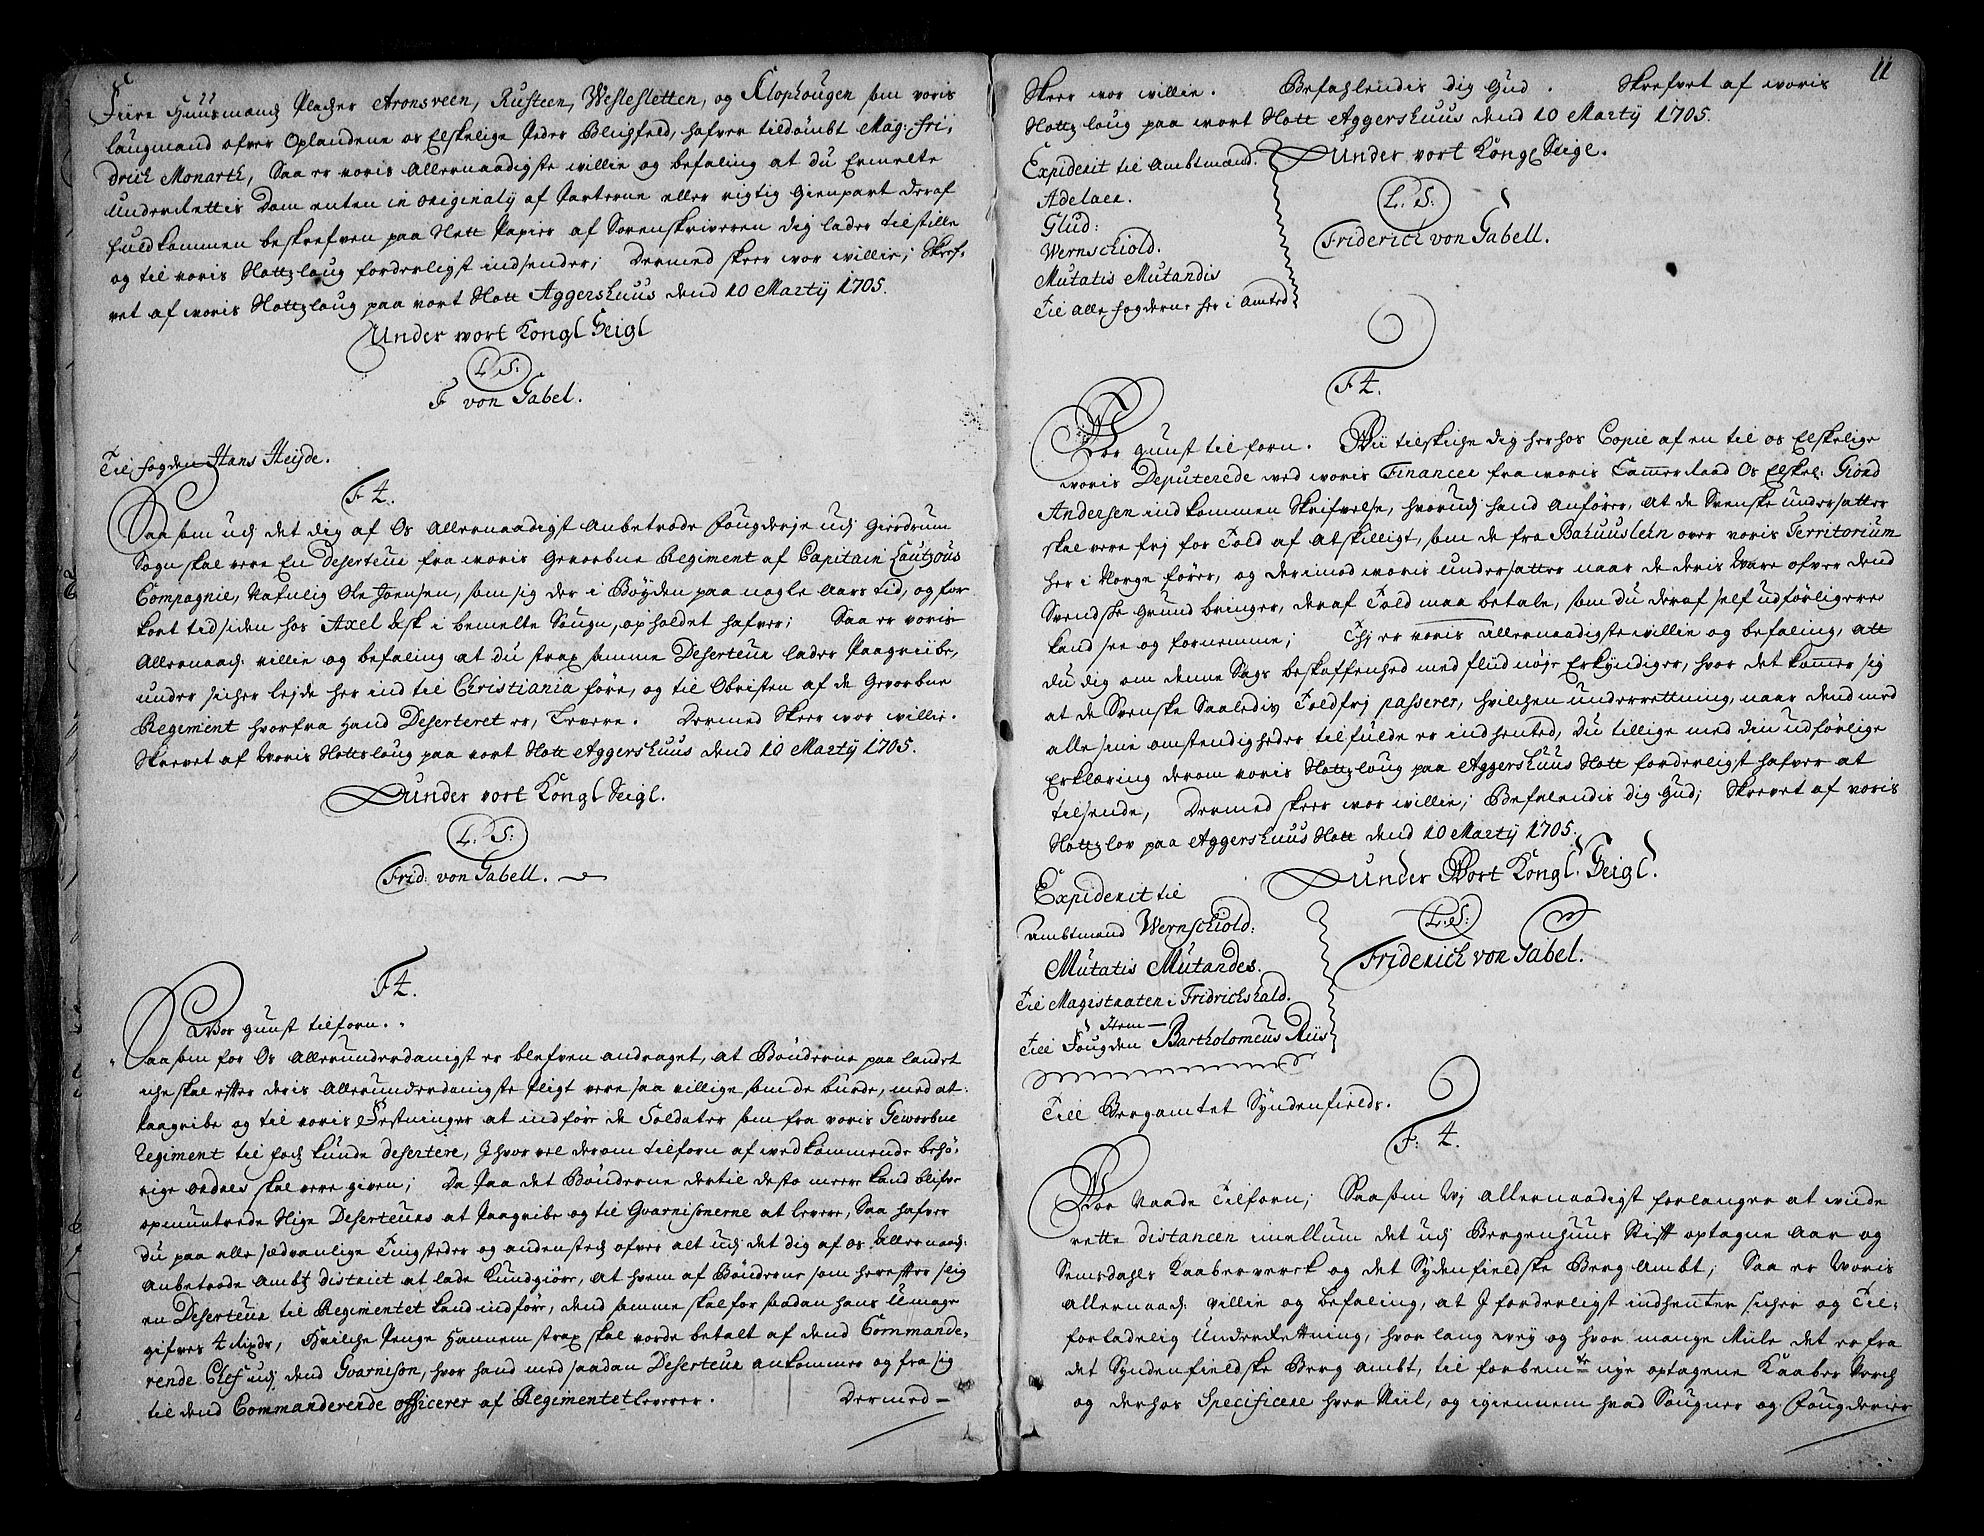 Fiire Huusmands Pladser Aronsveen, Rusteen, Weslesletten, og Klophougen som voris
laugmand ofver Oplandene os Elskelige Peder Blichfeld, hafver tildømbt Mag: Fri,
drich Monarth, Saa er voris Allernaadigste willie og befaling at du Ermelte
Underrettis Dom enten in originaly af Parterne eller rigtig Gienpart deraf
fuldkommen beskrefven paa Slett Papier af Sorenskriveren dig lader tilstille
og til voris Slottzloug forderligst indsender; Dermed skeer wor willie; Skref-
vet af woris Slottzloug paa vort Slott Aggershuus dend 10 Marty 1705.
Under wort Kongl Seigl
L. S:
F von Gabel.
Til fogden Hans Heyde.
F 4.
Saasom udj det dig af Os Allernaadigst Anbetrode Fougderje udj Gierdrum
Sogn skal vere En Deserteur fra woris Gevorbne Regiment af Capitain Cautzous
Compagnie, Nafnlig Ole Joensen, som sig der i Bøyden paa nogle Aars tid, og for
kort tid siden hos Axel Ask i bemelte Sougn, opholdet hafver; Saa er voris
Allernaad: villie og befaling at du strax samme Deserteur lader Paagriibe,
under sicher lejde her ind til Christiania føre, og til Obristen af de Gevorbne
Regiment hvorfra Hand Deserteret er, Levere. Dermed Skeer wor willie.
Skrevet af Woris Slottsloug paa vort Slott Aggershuus dend 10 Marty 1705.
Under vort Kongl Seigl.
L. S:
Frid: von Gabell.
F 4.
Wor gunst tilforn.
Saasom for Os Allerunderdanigst er blefven andraget, at Bønderne paa landet
iche skal efter deris Allerunderdanigste Pligt vere saa villige som de burde, med at
Paagribe og til voris Festninger at indføre de Soldater som fra voris Geworbne
Regiment til fods kunde desertere, I hvor vel derom tilforn af wedkommende behø,
rige Ordres skal vere given; Da Paa det Bønderne dertil desto meere kand blifve
opmuntrede Slige Deserteurs at Paagribe og til Gvarnisonerne at levere, Saa hafver
du paa alle sædvanlige Tingsteder og andensteds ofver alt udj det dig af os Allernaad:
Anbetrode Ambtz district at lade Kundgiøre, at hvem af Bønderne som herefter slig
en Deserteur til Regimentet kand indføre, dend samme skal for saadan hans Umage
gifves 4 rixdr, Hvilche Penge Hannem strax skal worde betalt af dend Commande,
rende Chef udj dend Gvarnison, hvor hand med saadan Deserteur ankommer og fra sig
til dend Commanderende officerer af Regimentet leverer. Dermed
11
Skeer wor willie. Befahlendis dig Gud. Skrefvet af woris
Slottzloug paa wort Slott Aggershuus dend 10 Marty 1705.
Expiderit til Ambtmand.
Under vort Kongl Seigl.
Adelaer.
L. S:
Glud:
Friderich von Gabell.
Wernschiold.
Mutatis Mutandis
Til alle fogderne her i Amted
F 4.
Vor gunst tilforn. Wii tilskiche dig herhos Copie af en til os Elskelige
woris Deputerede wed woris Financer fra woris Cammerraad Os Elskel: Giord
Andersen indkommen Skrifvelse, hvorudj hand Anfører, at de Svenske undersatter
skal vere frj for Told af Atskilligt, som de fra Bahuuslehn over voris Territorium
her i Norge fører, og derimod woris undersatter naar de deris Ware ofver dend
Svendske Grund bringer, deraf Told maa betale, som du deraf self udførligere
kand see og fornemme; Thj er voris allernaadigste willie og befaling, att
du dig om denne Sags beskaffenhed med fliid nøje Erkyndiger, hvor det kommer sig
at de Svenske Saaledis Toldfrj passerer, hvilchen underrettning, naar dend med
alle sine omstendigheder tilfulde er indhented, Du tillige med din udførlige
Erklæring derom voris Slottzloug paa Aggershuus Slott forderligst hafver at
tilsende, Dermed skeer wor willie; Befalendis dig Gud; Skrevet af voris
Slottzlov paa Aggershuus Slott dend 10 Marty 1705.
Under Wort Kongl. Seigl.
Expiderit til
L. S:
Ambtmand Wernschiold:
Friderich von Gabel.
Mutatis Mutandes.
Til Magistraten i Fridrichshald.
Item
Till Fougden Bartholomeus Riis
Till Bergamtet Syndenfields.
F: 4.
Vor Naade Tilforn; Saasom Wj allernaadigst forlanger at wiide
rette distancen imellum det udj Bergenhuus Stift optagne Aar og
Semsdahls Kaaberverck og det Sydenfieldske Berg Ambt; Saa er Woris
Allernaad: villie og befaling, at I forderligst indhenter sicher og Til-
forladelig Underrettning, hvor lang wey og hvor mange Miile det er fra
det Syndenfieldske Berg Ambt, til forbemte nye optagene Kaaber Verch
og derhos Specificere hver Miil, og igiennem hvad Sougner og Fougderier